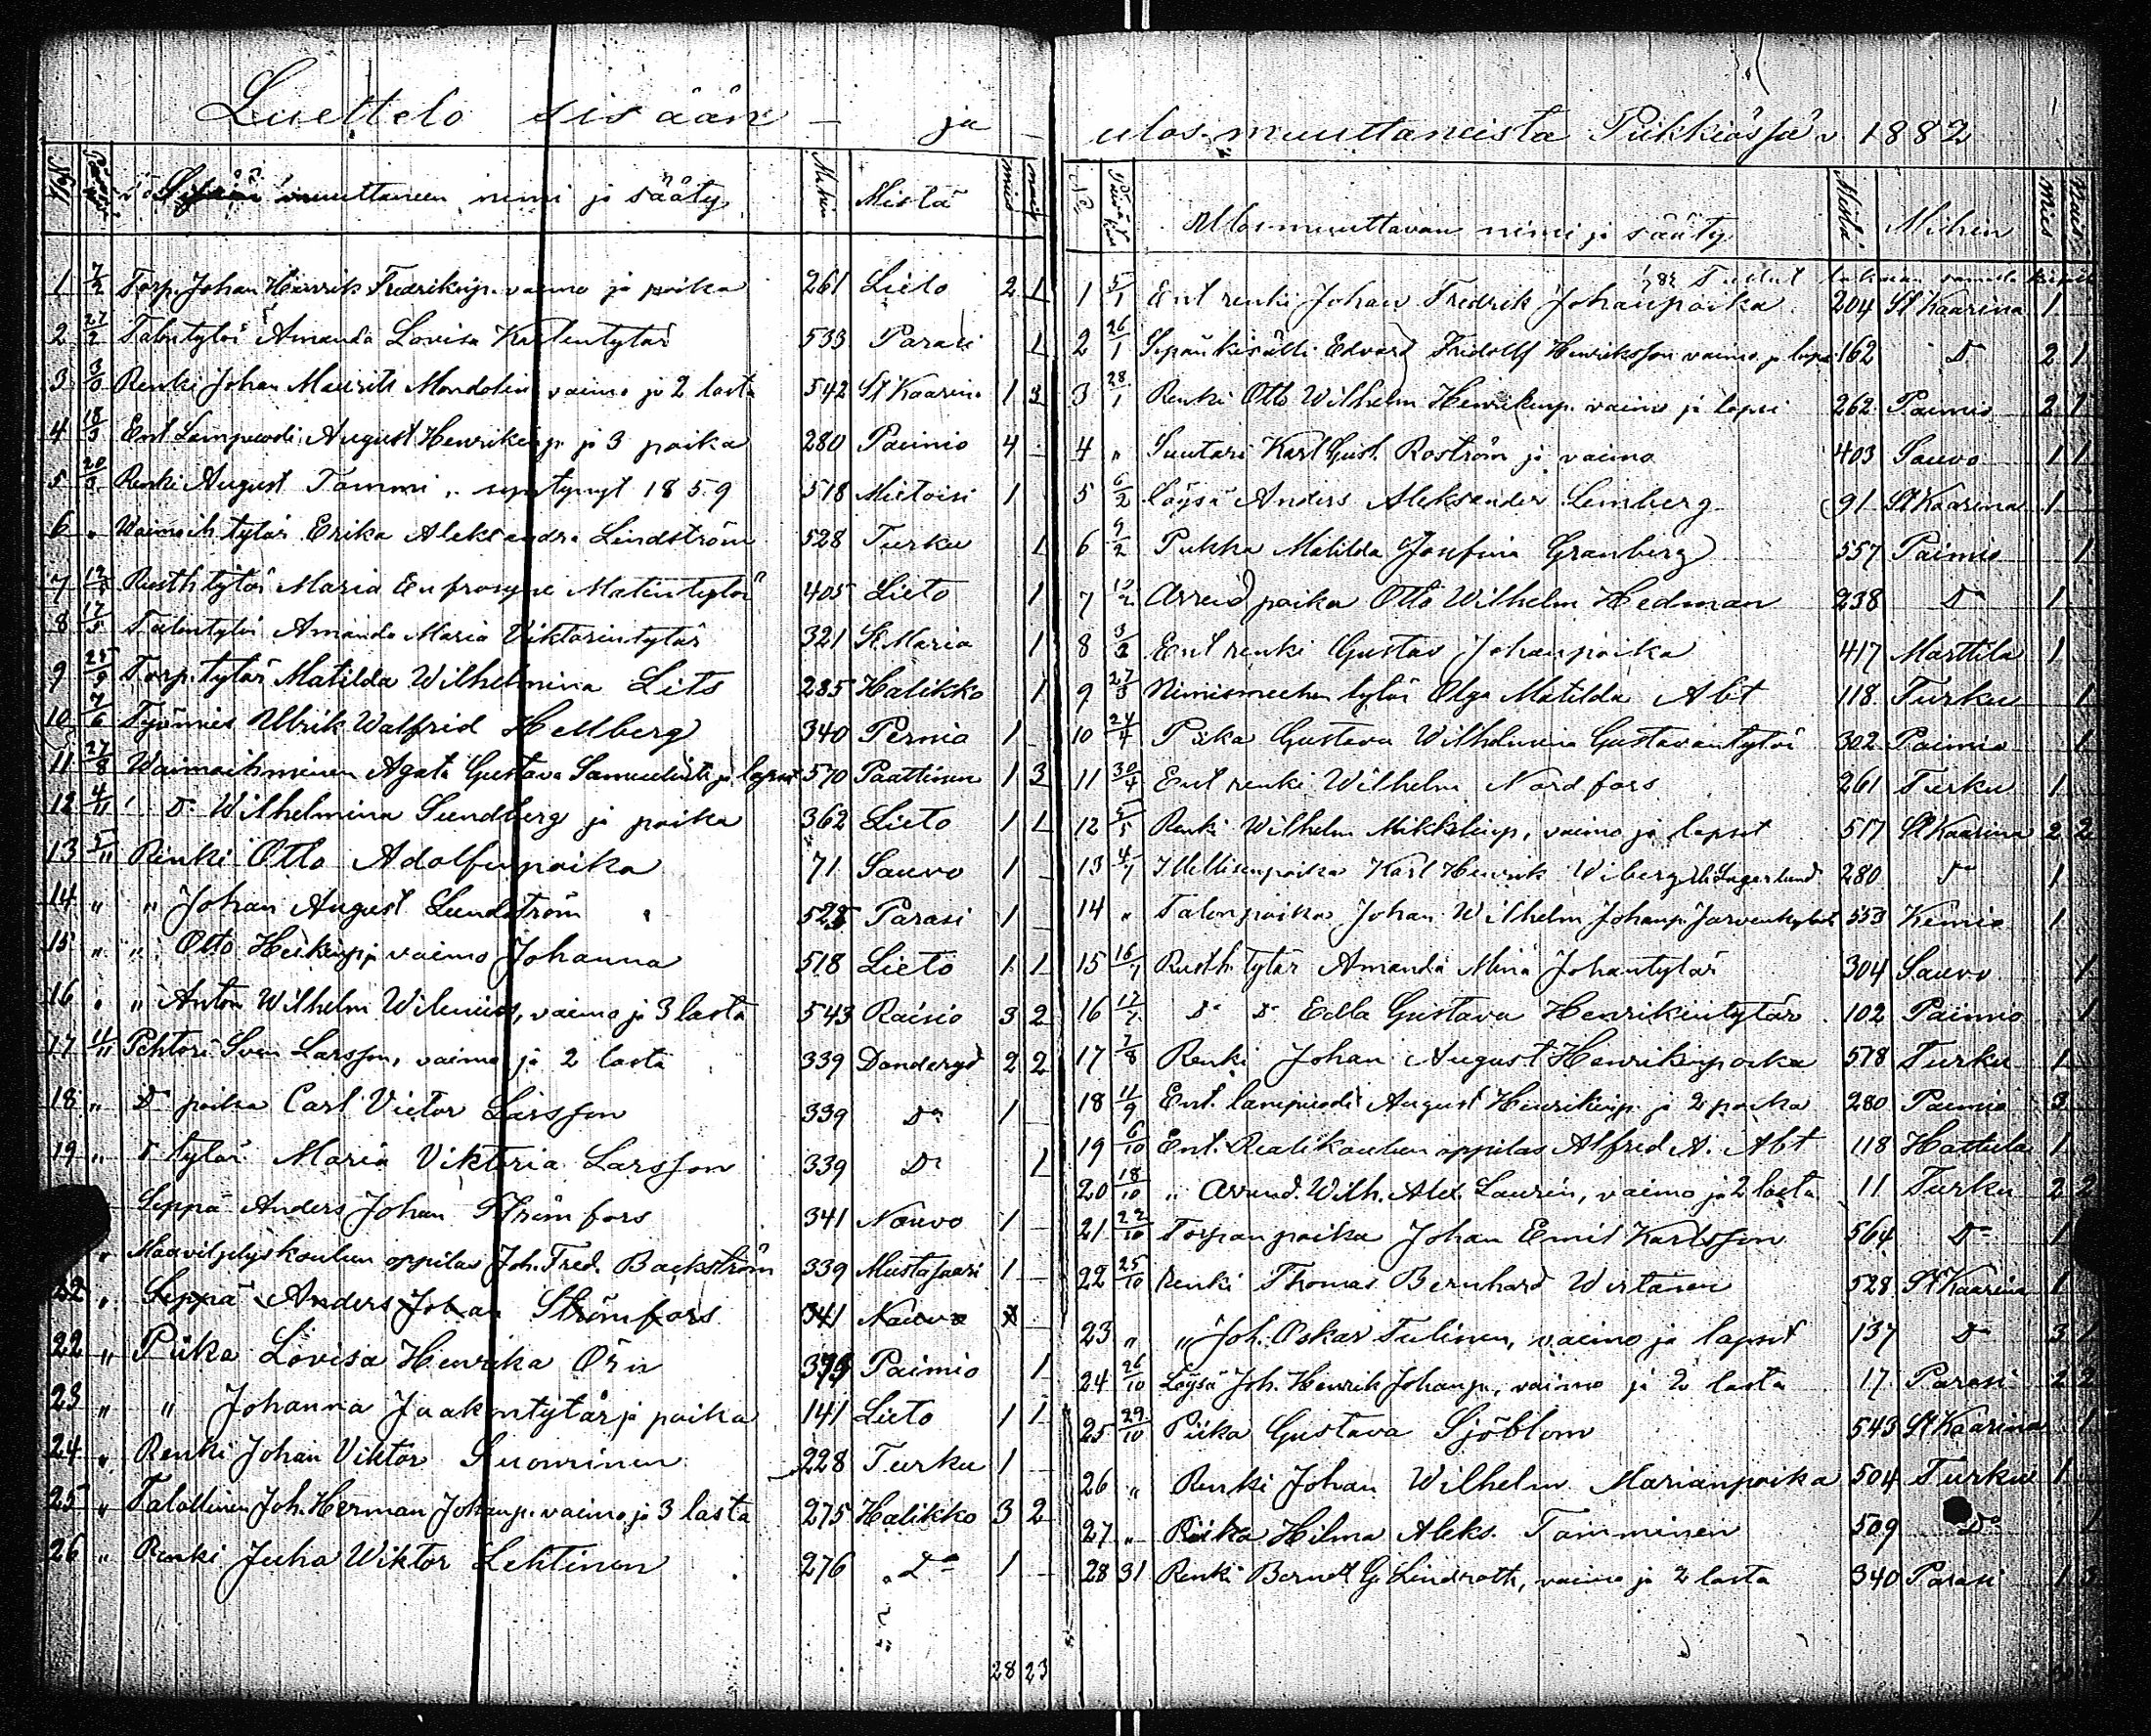 Luettelo sisään - ja - ulos-muuttaneista Piikkiössä v 1882
No muuttaneen nimi ja sääty Mihin Mistä mies
1 7/2 Torp. Johan Henrik Fredrikinp. vaimo ja poika 261 Lieto 2 1
2 27/2 Talontytär Amanda Lovisa Karlentytär 533 Parasi 1
3 Renki Johan Maurits Mondolin vaimo ja 2 lasta 542 St Kaarina 1 3
4 18/3 Ent Lampuodi August Henrikinp. ja 3 poika 280 Paimio 4
5 20/3 Renki August Tammi, syntynyt 1859 518 Mietoisi 1
6 " Waimoih tytär Erika Aleksandra Lindström 528 Turku 1
7 Rusth tytär Maria Eufrosyne Matintytär 405 Lieto 1
8 17/5 Talontytär Amanda Maria Viktorintytär 321 St Maria 1
9 Torp. tytär Matilda Wilhelmina Lits 285 Halikko 1
10 7/6 Työmies Ulrik Walfrid Hellberg 340 Perniö 1
11 27/8 Waimoihminen Agata Gustava ja lapset 570 Paattinen 1 3
12 4/11 Do Wilhelmina Sundberg ja poika 362 Lieto 1 1
13 5/" Renki Otto Adolfinpoika 71 Sauvo 1
14 " " Johan August Lundström 525 Parasi 1
15 " " Otto Heikinp. ja vaimo Johanna 518 Lieto 1 1
16 " " Anton Wilhelm Wilenius, vaimo ja 3 lasta 543 Raisio 3 2
17 11/11 Pehtori Sven Larsson, vaimo ja 2 lasta 339 Danderyd 2 2
18 " Do poika Carl Victor Larsson 339 Do 1
19 " D tytär Maria Viktoria Larsson 339 Do 1
Seppä Anders Johan Strömfors 341 Nauvo 1
" Maaviljelyskoulun oppilas Joh. Fred. Backström 339 Mustasaari 1
22 " Seppä Anders Johan Strömfors 341 Nauvo
22 " Piika Lovisa Henrika Örn Paimio 1
23 " " Johanna Jaakontytär ja poika 141 Lieto 1 1
24 " Renki Johan Viktor Suominen 228 Turku 1
25 " Talollinen Joh. Herman Johanp. vaimo ja 3 lasta 275 Halikko 3 2
26 " Renki Juha Wiktor Lehtinen 276 Do 1
28 23
No Ulosmuuttavan nimi ja sääty Mistä Mihin Mies
1 5/1 Ent renki Johan Fredrik Johanpoika 204 St Kaarina 1
2 26/1 Sepänkisälli Edvard Fridolf Henriksson vaimo ja lapsi 162 Do 2 1
3 28/1 Renki Otto Wilhelm Henrikinp. vaimo ja lapsi 262 Paimio 2 1
4 " Suutari Karl Gust. Roström ja vaimo 403 Sauvo 1 1
5 6/2 Löysä Anders Aleksander Lemberg 91 St Kaarina 1
6 9/2 Piika Matilda Josefina Granberg 557 Paimio 1
7 12/2 Arrend poika Otto Wilhelm Hedman 238 Do 1
8 Ent renki Gustav Johanpoika 417 Marttila 1
9 27/3 Nimismiehen tytär Olga Matilda Abt 118 Turku 1
10 24/4 Piika Gustava Wilhelmina Gustavantytär 302 Paimio 1
11 30/4 Ent renki Wilhelm Nordfors 261 Turku 1
12 5/5 Renki Wilhelm Mikkelinp, vaimo ja lapset 517 St Kaarina 2 2
13 4/7 Itsellisenpoika Karl Henrik Wiberg eli Lagerlund 280 Do 1
14 " Talonpoika Johan Wilhelm Johanp. 553 Kemiö 1
15 16/7 Rusth. tytär Amanda Mina Johantytär 304 Sauvo 1
16 17/7 Do Do Edla Gustava Henrikintytär 102 Paimio 1
17 7/8 Renki Johan August Henrikinpoika 578 Turku 1
18 11/9 Ent. lampuodi August Henrikinp. ja 2 poika 280 Paimio 3
19 6/10 Ent. Realikoulun oppilas Alfred A. Abt 118 Hattula 1
20 18/10 " Arrend. Wilh. Alex. Laurén, vaimo ja 2 lasta 11 Turku 2 2
21 22/10 Torpanpoika Johan Emil Karlsson 564 Do 1
22 25/10 Renki Thomas Bernhard Wirtanen 528 St Kaarina 1
23 " " Joh. Oskar Tulinen, vaimo ja lapset 137 Do 3 1
24 26/10 Löysä Joh. Henrik Johanp., vaimo ja 2 lasta 17 Parasi 2 2
25 29/10 Piika Gustava Sjöblom 543 St Kaarina 1
26 " Renki Johan Wilhelm Marianpoika 504 Turku 1
27 " Piika Hilma Aleks. Tamminen 509 Do 1
28 31 Renki Berndt G. Lindroth, vaimo ja 2 lasta 340 Parasi 1 3